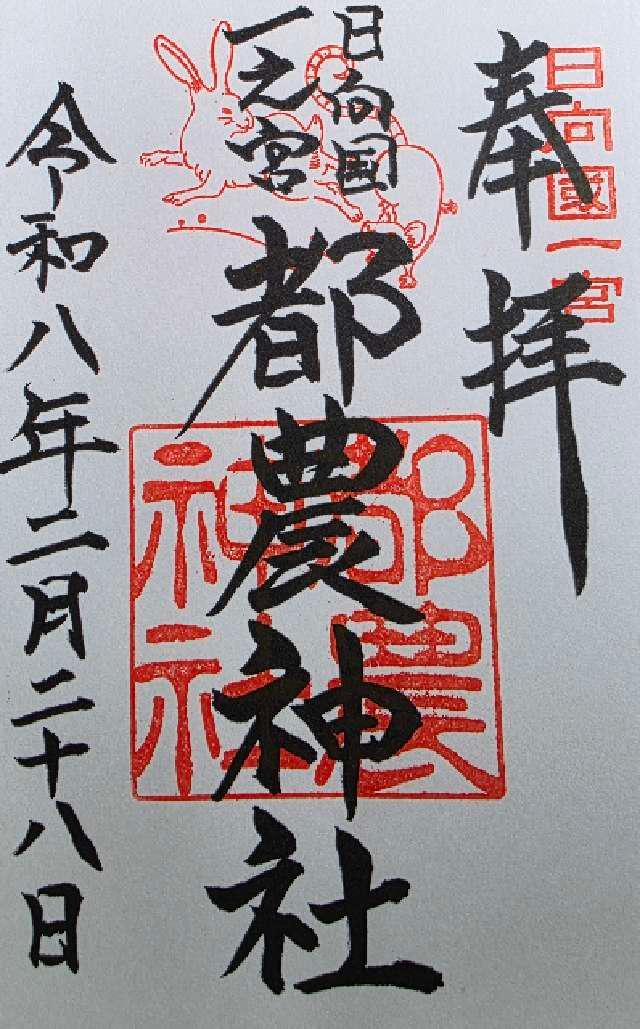 奉拝
日向國一宮
日向国
一之宮
都農神社
都農
神社
令和八年二月二十八日